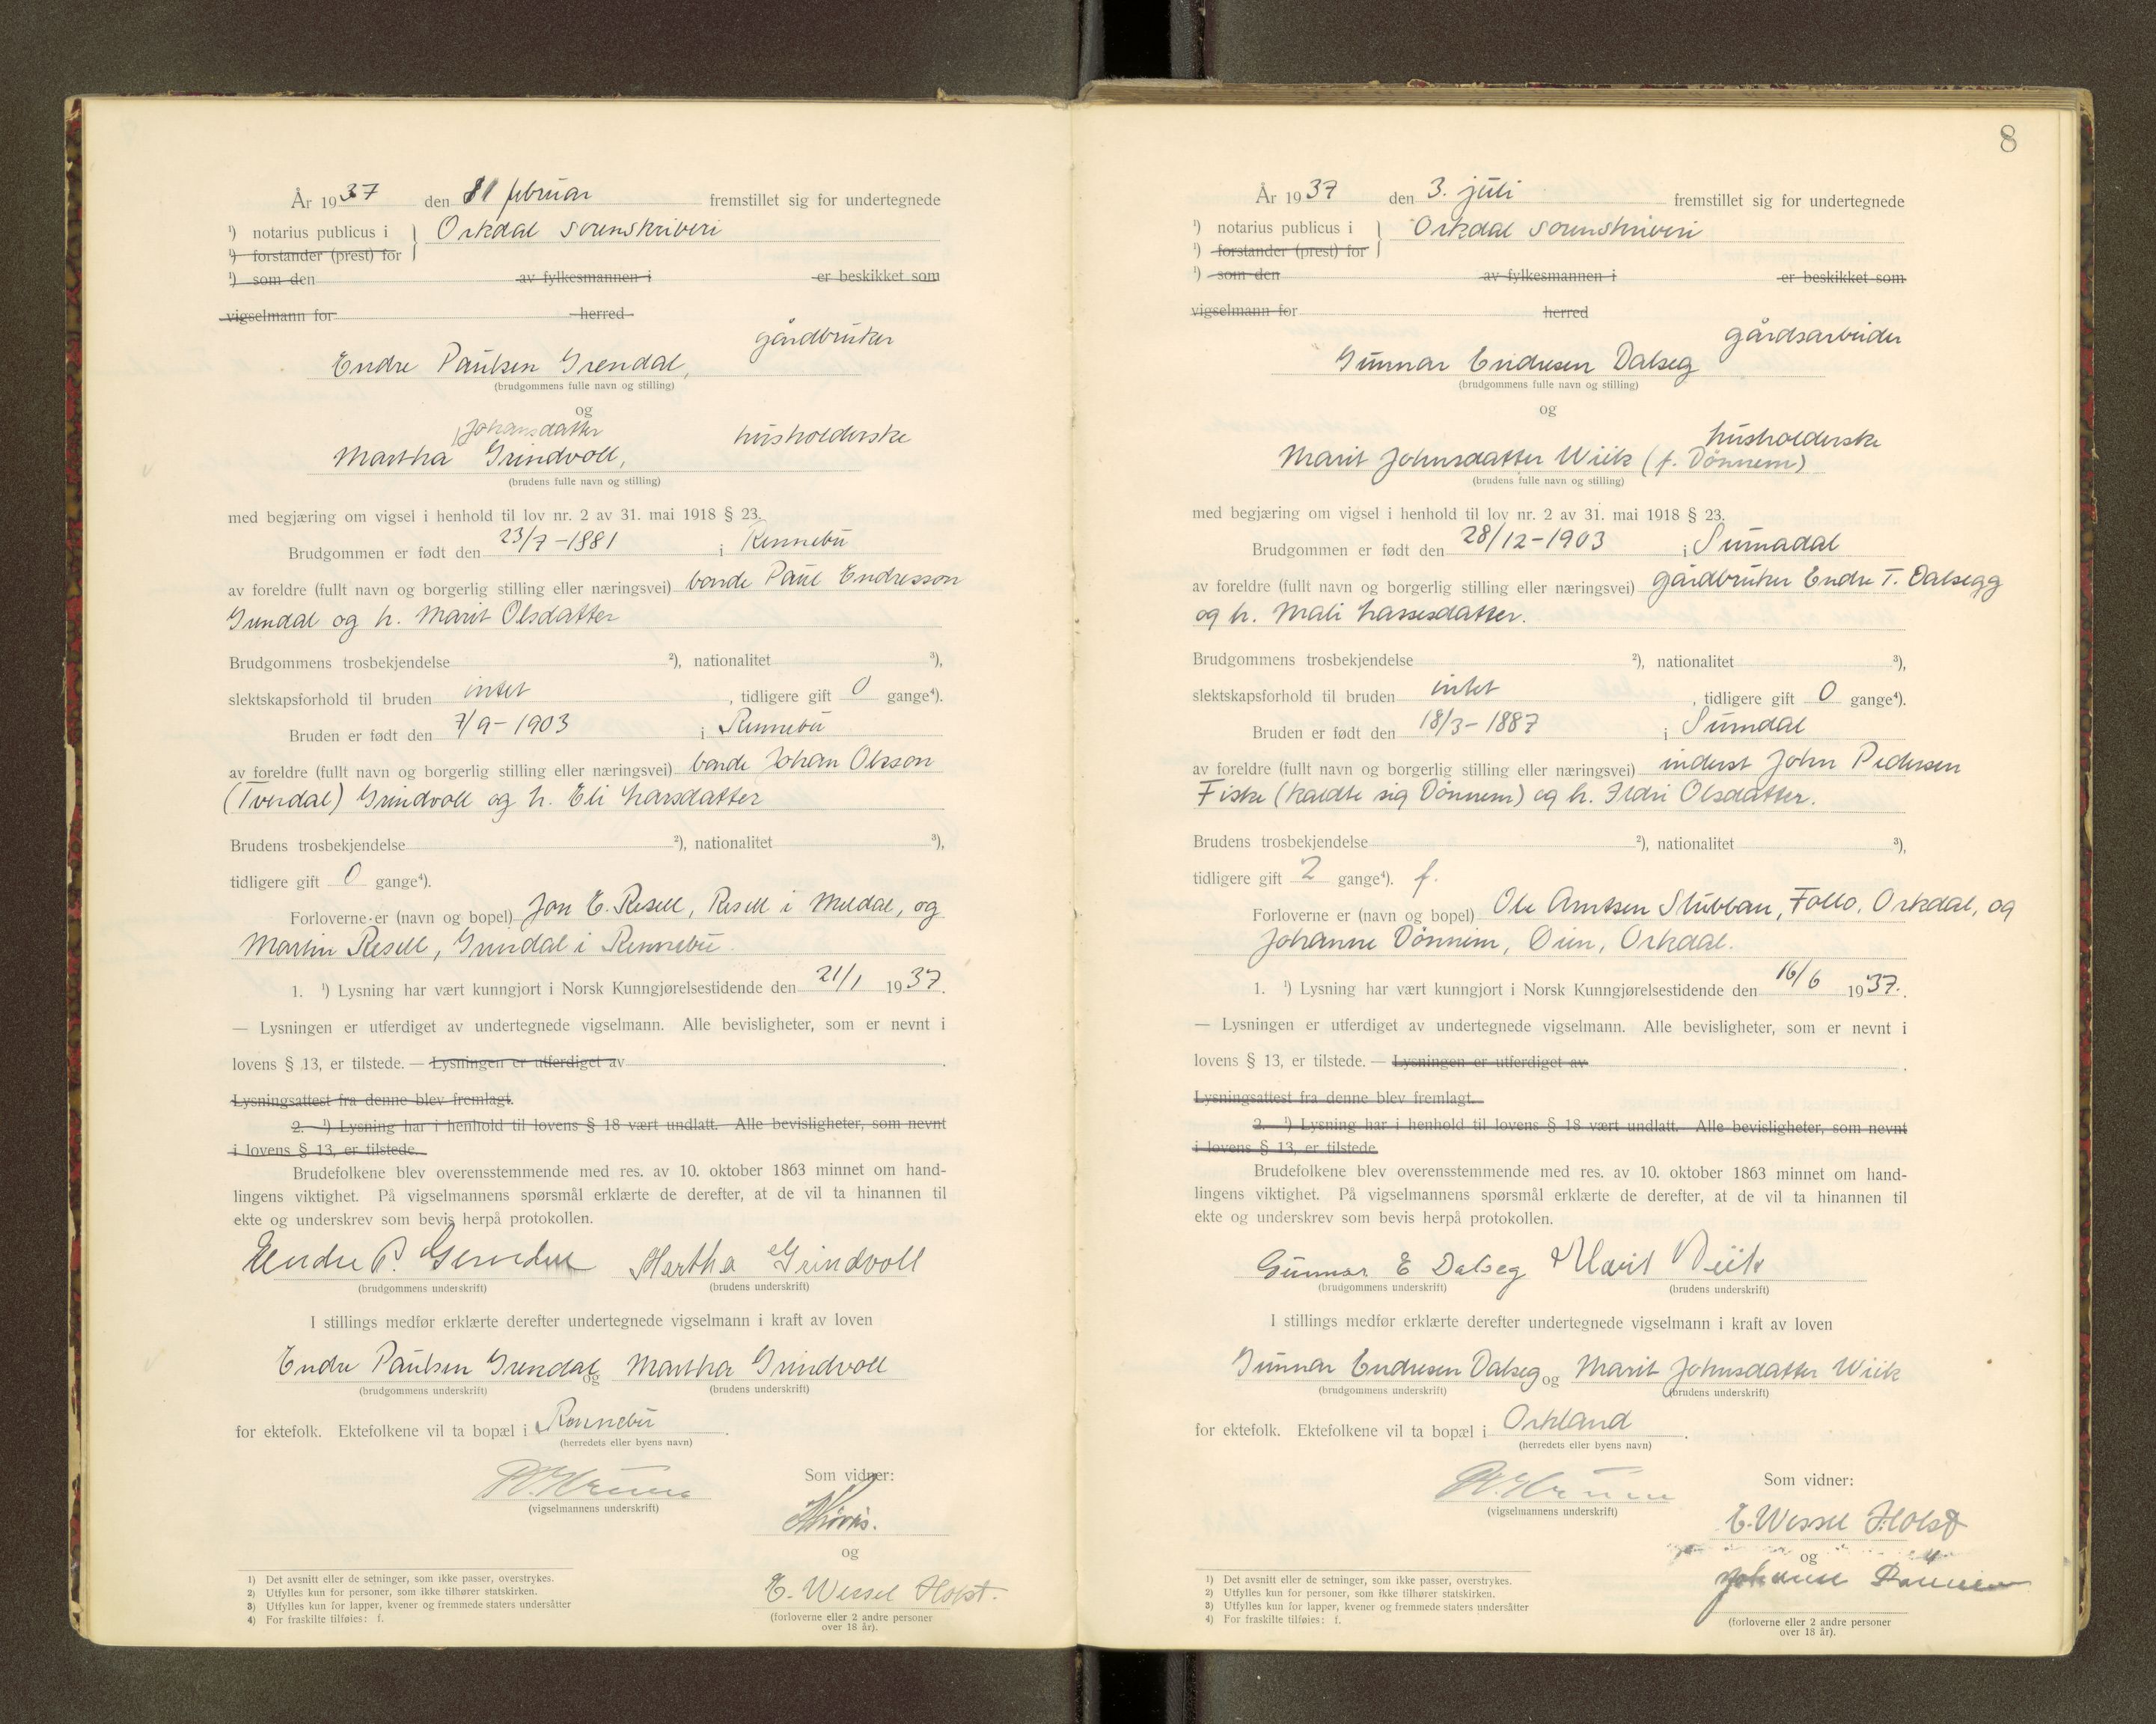 År 1937 den 11 februar fremstillet sig for undertegnede
¹) notarius publicus i Orkdal sorenskriveri
¹) forstander (prest) for
¹) som den av fylkesmannen i er beskikket som
vigselmann for herred
gårdbruker
Endre Paulsen Grendal,
(brudgommens fulle navn og stilling)
og
Johansdatter
Martha Grindvoll, husholderske
(brudens fulle navn og stilling)
med begjæring om vigsel i henhold til lov nr. 2 av 31. mai 1918 § 23.
Brudgommen er født den 23/7-1881 i Rennebu
av foreldre (fullt navn og borgerlig stilling eller næringsvei) bonde Paul Endresson
Grendal og h. Marit Olsdatter
Brudgommens trosbekjendelse ²), nationalitet ³),
slektskapsforhold til bruden intet, tidligere gift 0 gange⁴).
Bruden er født den 7/9-1903 i Rennebu
av foreldre (fullt navn og borgerlig stilling eller næringsvei) bonde Johan Olsson
(Tverdal) Grindvoll og h. Eli Larsdatter
Brudens trosbekjendelse ²), nationalitet ³),
tidligere gift 0 gange⁴).
Forloverne er (navn og bopel) Jon E. Resell, Resell i Meldal, og
Martin Resell, Grendal i Rennebu.
1. ¹) Lysning har vært kunngjort i Norsk Kunngjørelsestidende den 21/1 1937.
— Lysningen er utferdiget av undertegnede vigselmann. Alle bevisligheter, som er nevnt i
lovens § 13, er tilstede. — Lysningen er utferdiget av
Lysningsattest fra denne blev fremlagt.
2. ¹) Lysning har i henhold til lovens § 18 vært undlatt. Alle bevisligheter, som nevnt
i lovens § 13, er tilstede.
Brudefolkene blev overensstemmende med res. av 10. oktober 1863 minnet om hand-
lingens viktighet. På vigselmannens spørsmål erklærte de derefter, at de vil ta hinannen til
ekte og underskrev som bevis herpå protokollen.
Endre P. Grendal Martha Grindvoll
(brudgommens underskrift) (brudens underskrift)
I stillings medfør erklærte derefter undertegnede vigselmann i kraft av loven
Endre Paulsen Grendal og Martha Grindvoll
(brudgommens underskrift) (brudens underskrift)
for ektefolk. Ektefolkene vil ta bopæl i Rennebu.
(herredets eller byens navn)
Som vidner:
(vigselmannens underskrift)
og
E. Wessel Holst.
(forloverne eller 2 andre personer
over 18 år).
1) Det avsnitt eller de setninger, som ikke passer, overstrykes.
2) Utfylles kun for personer, som ikke tilhører statskirken.
3) Utfylles kun for lapper, kvener og fremmede staters undersåtter
4) For fraskilte tilføies: f.
8
År 1937 den 3. juli fremstillet sig for undertegnede
¹) notarius publicus i Orkdal sorenskriveri
¹) forstander (prest) for
¹) som den av fylkesmannen i er beskikket som
vigselmann for herred
gårdsarbeider
Gunnar Endresen Dalseg
(brudgommens fulle navn og stilling)
og
husholderske
Marit Johnsdatter Wiik (f. Dönnem)
(brudens fulle navn og stilling)
med begjæring om vigsel i henhold til lov nr. 2 av 31. mai 1918 § 23.
Brudgommen er født den 28/12-1903 i Surnadal
av foreldre (fullt navn og borgerlig stilling eller næringsvei) gårdbruker Endre T. Dalsegg
og h. Mali Lassesdatter.
Brudgommens trosbekjendelse ²), nationalitet ³),
slektskapsforhold til bruden intet, tidligere gift 0 gange⁴).
Bruden er født den 18/3-1887 i Surndal
av foreldre (fullt navn og borgerlig stilling eller næringsvei) inderst John Pedersen
Fiske (kaldte sig Dönnem) og h. Ildri Olsdatter.
Brudens trosbekjendelse ²), nationalitet ³),
tidligere gift 2 gange⁴). f.
Forloverne er (navn og bopel) Ole Arntsen Stubban, Follo, Orkdal, og
Johanne Dönnem, Öien, Orkdal.
1. ¹) Lysning har vært kunngjort i Norsk Kunngjørelsestidende den 16/6 1937.
— Lysningen er utferdiget av undertegnede vigselmann. Alle bevisligheter, som er nevnt i
lovens § 13, er tilstede. — Lysningen er utferdiget av
Lysningsattest fra denne blev fremlagt.
2. ¹) Lysning har i henhold til lovens § 18 vært undlatt. Alle bevisligheter, som nevnt
i lovens § 13, er tilstede
Brudefolkene blev overensstemmende med res. av 10. oktober 1863 minnet om hand-
lingens viktighet. På vigselmannens spørsmål erklærte de derefter, at de vil ta hinannen til
ekte og underskrev som bevis herpå protokollen.
Gunnar E Dalseg Marit Wiik
(brudgommens underskrift) (brudens underskrift)
I stillings medfør erklærte derefter undertegnede vigselmann i kraft av loven
Gunnar Endresen Dalseg og Marit Johnsdatter Wiik
(brudgommens underskrift) (brudens underskrift)
for ektefolk. Ektefolkene vil ta bopæl i Orkland.
(herredets eller byens navn)
Som vidner:
(vigselmannens underskrift)
E. Wessel Holst
og
Johanne Dönnem
(forloverne eller 2 andre personer
over 18 år).
1) Det avsnitt eller de setninger, som ikke passer, overstrykes.
2) Utfylles kun for personer, som ikke tilhører statskirken.
3) Utfylles kun for lapper, kvener og fremmede staters undersåtter
4) For fraskilte tilføies: f.